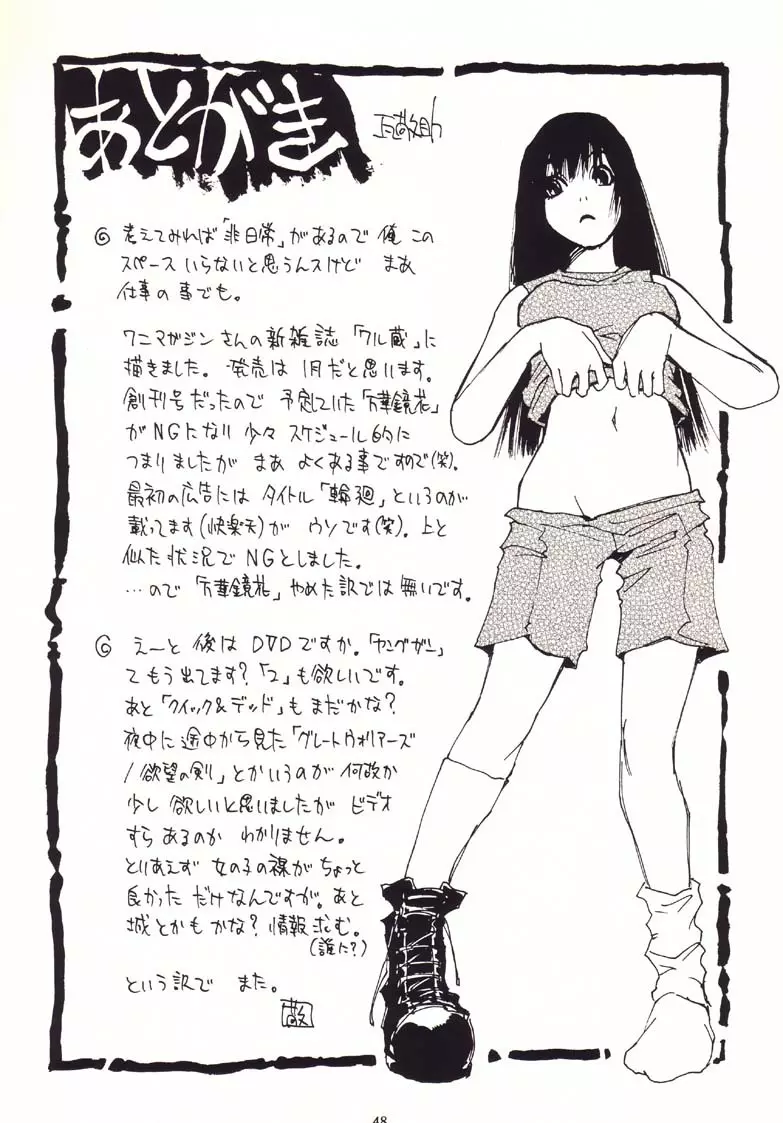 あとがき
◎ 考えてみれば「非日常」があるので 俺 この
スペース いらないと思うんスけど まあ
仕事の事でも。
ワニマガジン さんの新雑誌 「ワル蔵」に
描きました。 発売は 1月だと思います。
創刊号だったので 予定していた「万華鏡花」
が NGになり 少々 スケジュール的に
つまりましたが まあ よくある事ですので(笑)。
最初の広告には タイトル「輪廻」というのが
載ってます(快楽天)が ウソです(笑)。 上と
似た 状況で NGとしました。
…ので 「万華鏡花」やめた訳では 無いです。
◎ えーと 後は DVDですか。「ヤングガン」
てもう出てます?「2」も欲しいです。
あと「クイック&デッド」も まだかな?
夜中に途中から見た「グレートウォリアーズ
/欲望の剣」とかいうのが 何故か
少し 欲しいと思いましたが ビデオ
すら あるのか わかりません。
とりあえず 女の子の裸が ちょっと
良かった だけなんですが。あと
城とかも かな? 情報求む。
(誰に?)
という訳で また。
敬
48